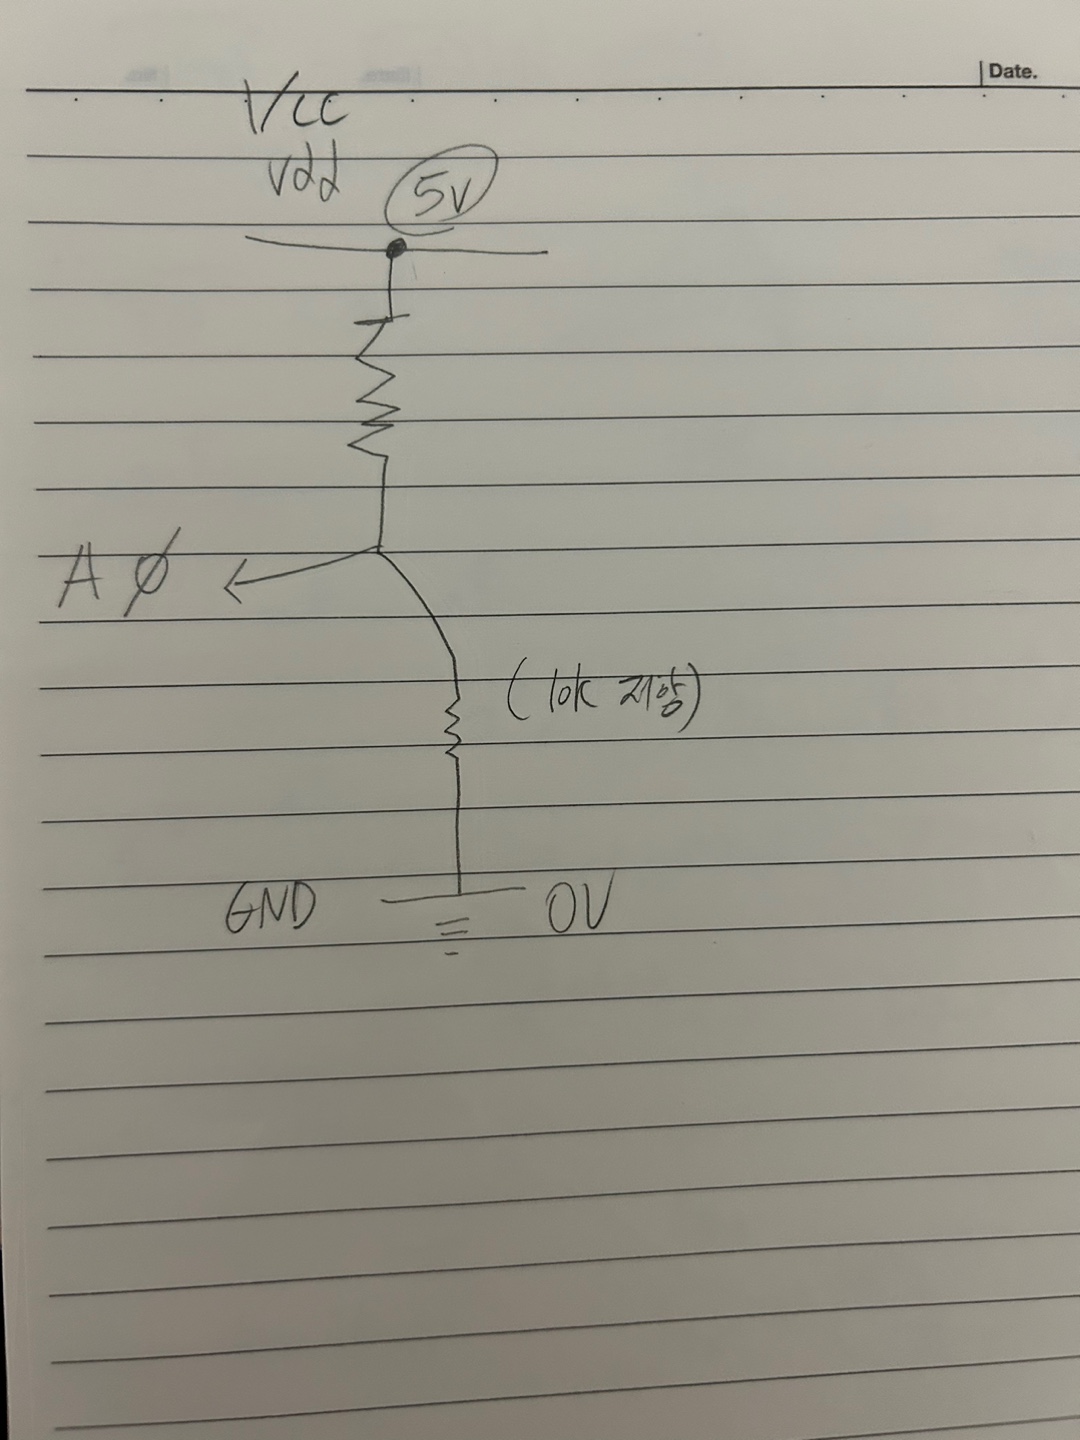 Date.
Vcc
Vdd
5V
A0
(10K 저항)
GND
0V